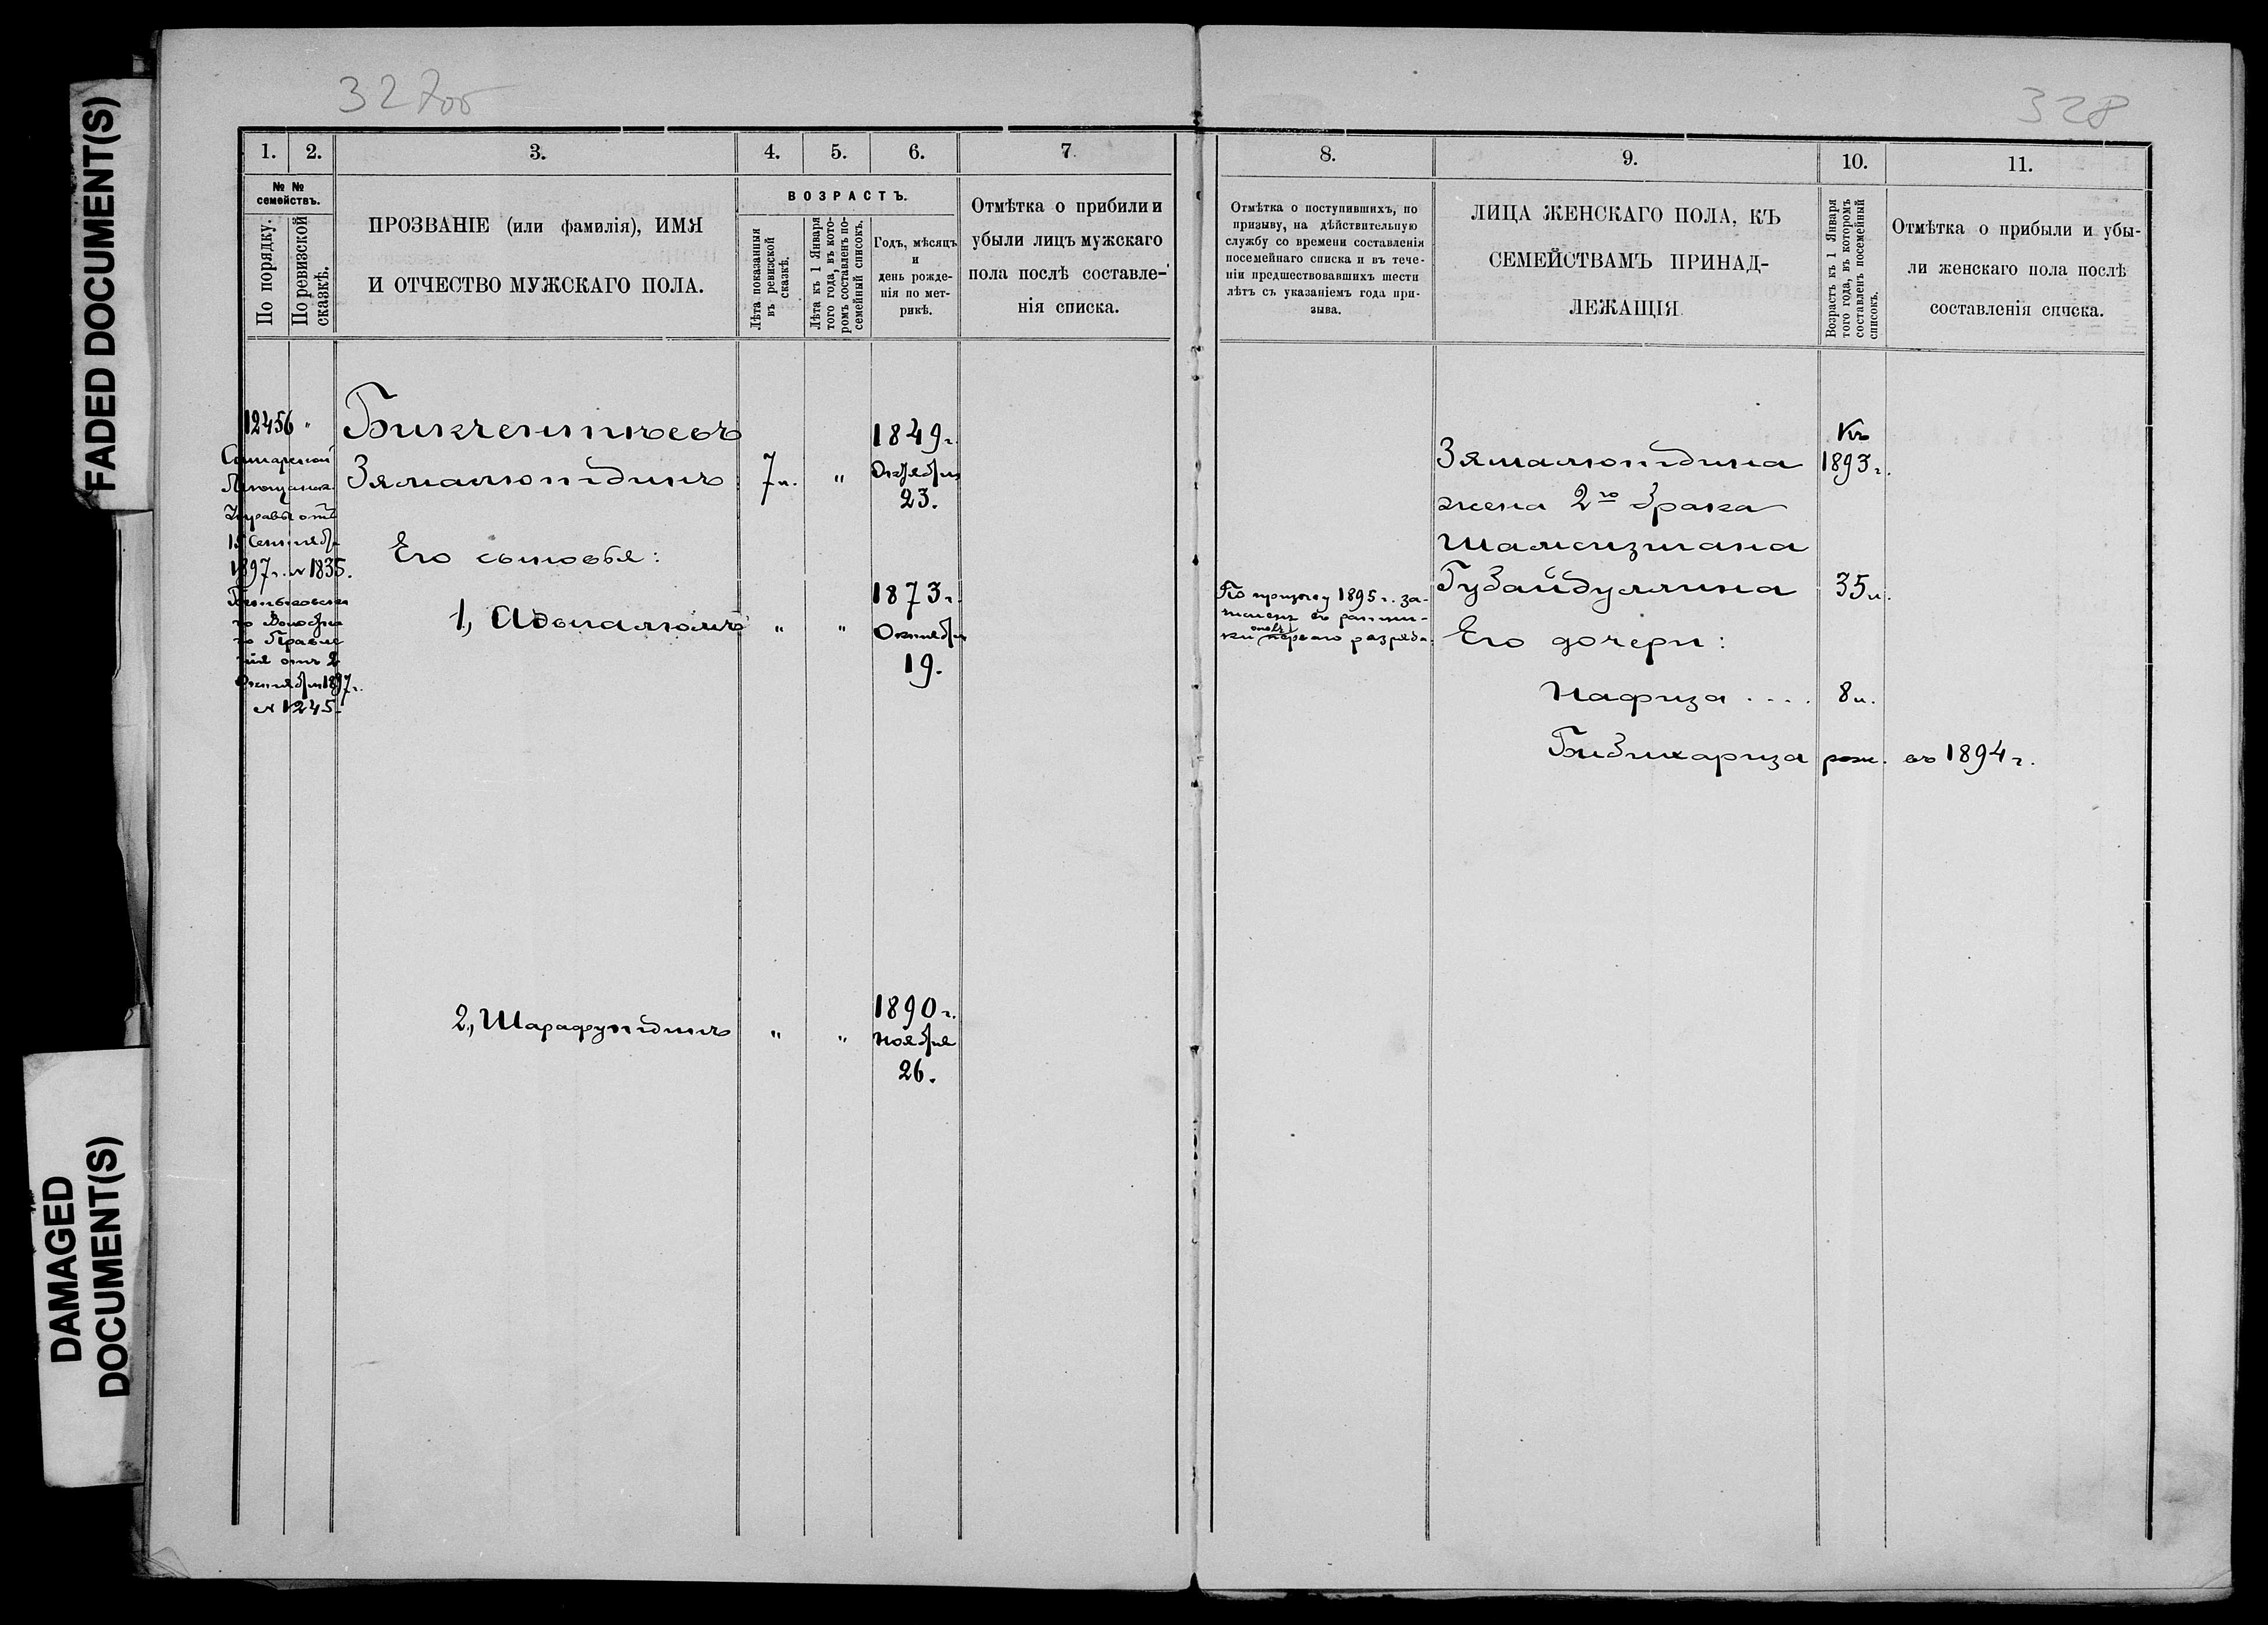 FADED DOCUMENT(S)
DAMAGED
DOCUMENT(S)
327об
1. 2. 3. 4. 5. 6. 7.
№ №
семействъ.
По порядку.
По ревизской
сказкѣ.
ПРОЗВАНІЕ (или фамилія), ИМЯ
И ОТЧЕСТВО МУЖСКАГО ПОЛА.
ВОЗРАСТЪ.
Лѣта показанныя
въ ревизской
сказкѣ.
Лѣта къ 1 Января
того года, въ кото-
ромъ составленъ по-
семейный списокъ.
Годъ, мѣсяцъ
и
день рожде-
нія по мет-
рикѣ.
Отмѣтка о прибили и
убыли лицъ мужскаго
пола послѣ составле-
нія списка.
12456 "
Самарской
Мѣщанск.
Управы отъ
15 Сентября
1897 г. № 1835.
го Волостна
го Правле
нія отъ 2
Октября 1897 г.
№ 1245.
Бикчентѣевъ
Зямалютдинъ 7 л. "
1849 г.
Октября
23.
Его сыновья:
1, Абдналюмъ " "
1873 г.
Октября
19.
2, Шарафутдинъ " "
1890 г.
Ноября
26.
328
8. 9. 10. 11.
Отмѣтка о поступившихъ, по
призыву, на дѣйствительную
службу со времени составленія
посемейнаго списка и въ тече-
ніи предшествовавшихъ шести
лѣтъ съ указаніемъ года при-
зыва.
ЛИЦА ЖЕНСКАГО ПОЛА, КЪ
СЕМЕЙСТВАМЪ ПРИНАД-
ЛЕЖАЩІЯ
Возрастъ къ 1 Января
того года, въ которомъ
составленъ посемейный
списокъ.
Отмѣтка о прибыли и убы-
ли женскаго пола послѣ
составленія списка.
По призыву 1895 г. за-
численъ въ ратни-
ки опол. перваго разряда.
Къ
1893 г.
Зямалютдина
жена 2го брака
Шамсизиана
Губайдуллина 35 л.
Его дочери:
Нафиза .... 8 л.
Бибихариза рож. въ 1894 г.